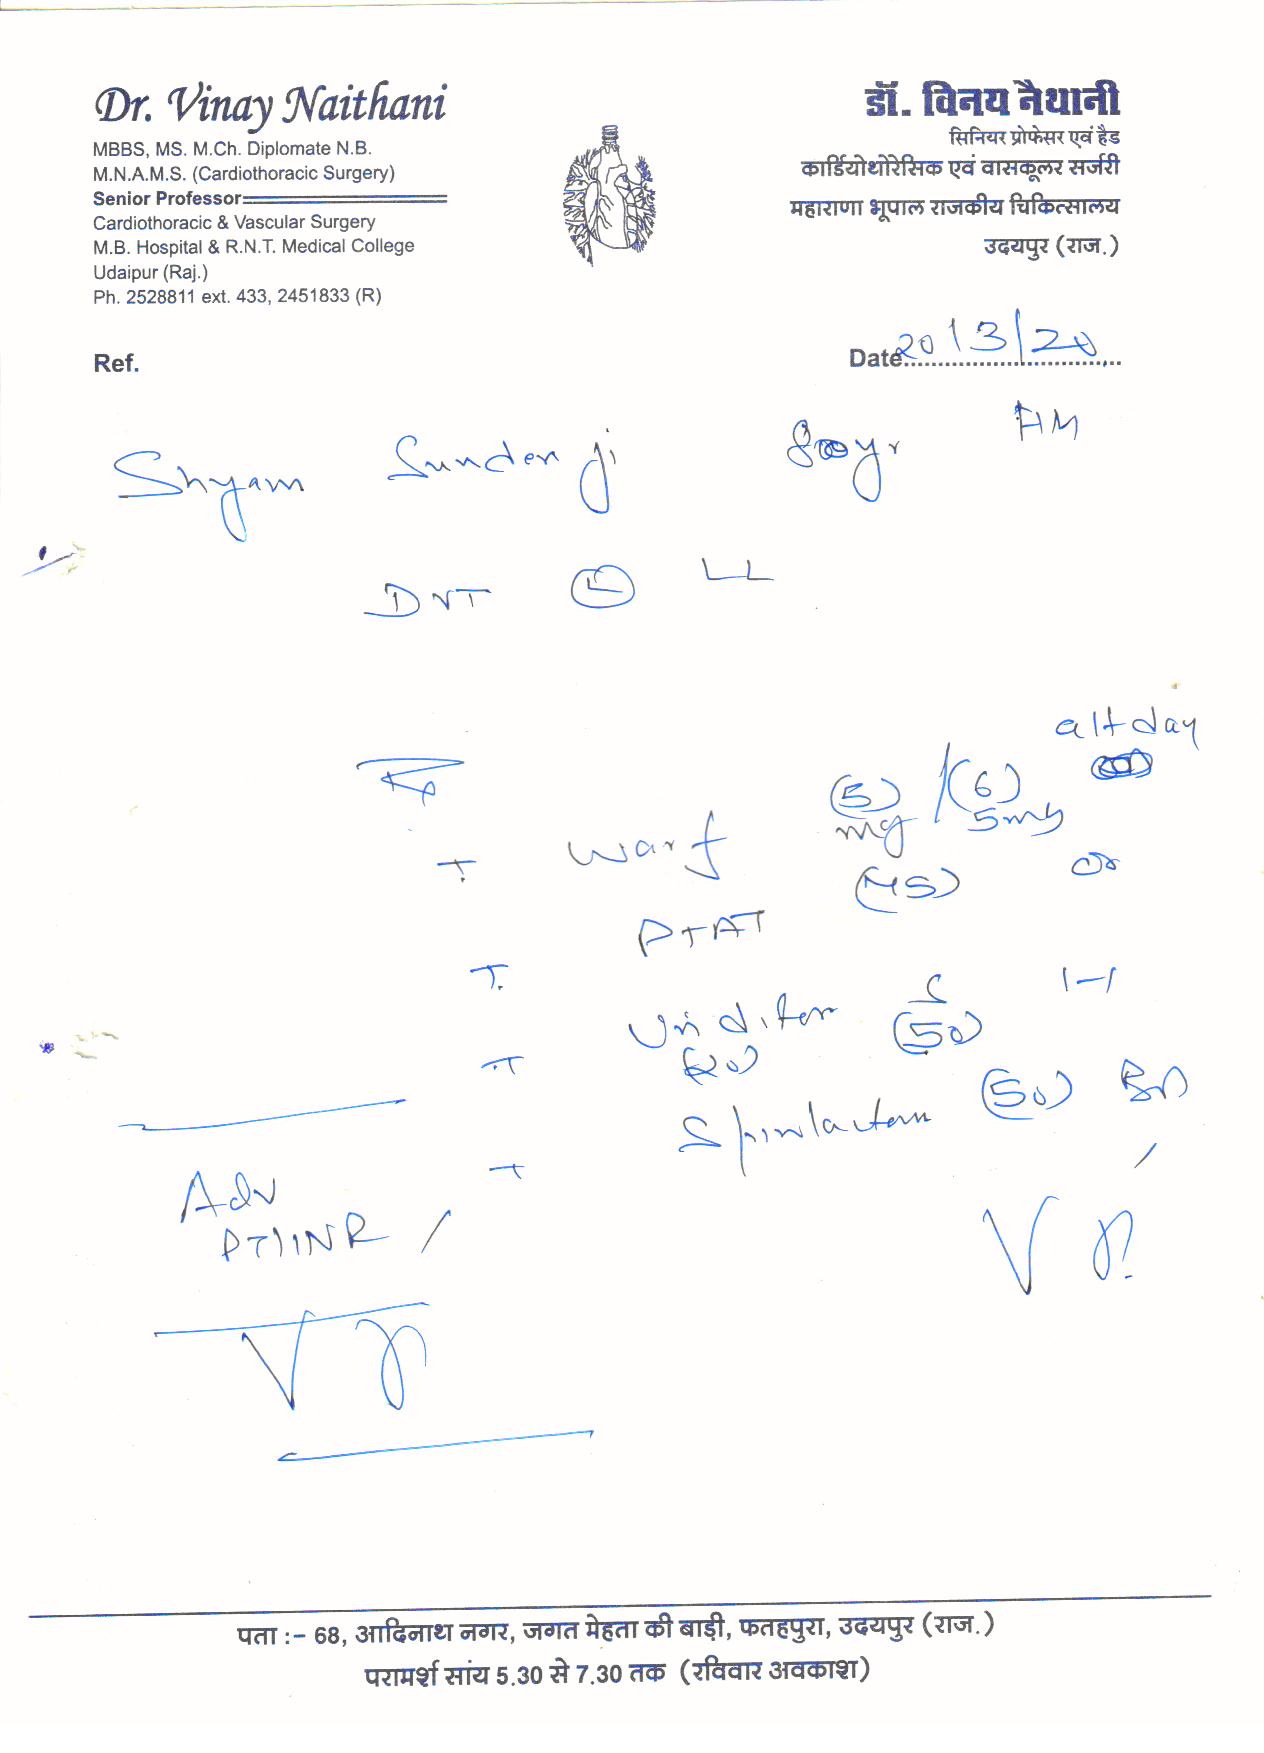 Dr. Vinay Naithani
MBBS, MS. M.Ch. Diplomate N.B.
M.N.A.M.S. (Cardiothoracic Surgery)
Senior Professor
Cardiothoracic & Vascular Surgery
M.B. Hospital & R.N.T. Medical College
Udaipur (Raj.)
Ph. 2528811 ext. 433, 2451833 (R)
डॉ. विनय नैथानी
सिनियर प्रोफेसर एवं हैड
कार्डियोथोरेसिक एवं वासकूलर सर्जरी
महाराणा भूपाल राजकीय चिकित्सालय
उदयपुर (राज.)
Ref.
Date 20/3/20
Shyam Sunder ji
DVT (L) LL
alt day
T. Warf (5) mg / (6) 5mg
(HS)
T.
1-1
(50)
(20)
T (50) BD
T
Adv
PT/INR
पता :- 68, आदिनाथ नगर, जगत मेहता की बाड़ी, फतहपुरा, उदयपुर (राज.)
परामर्श सांय 5.30 से 7.30 तक (रविवार अवकाश)